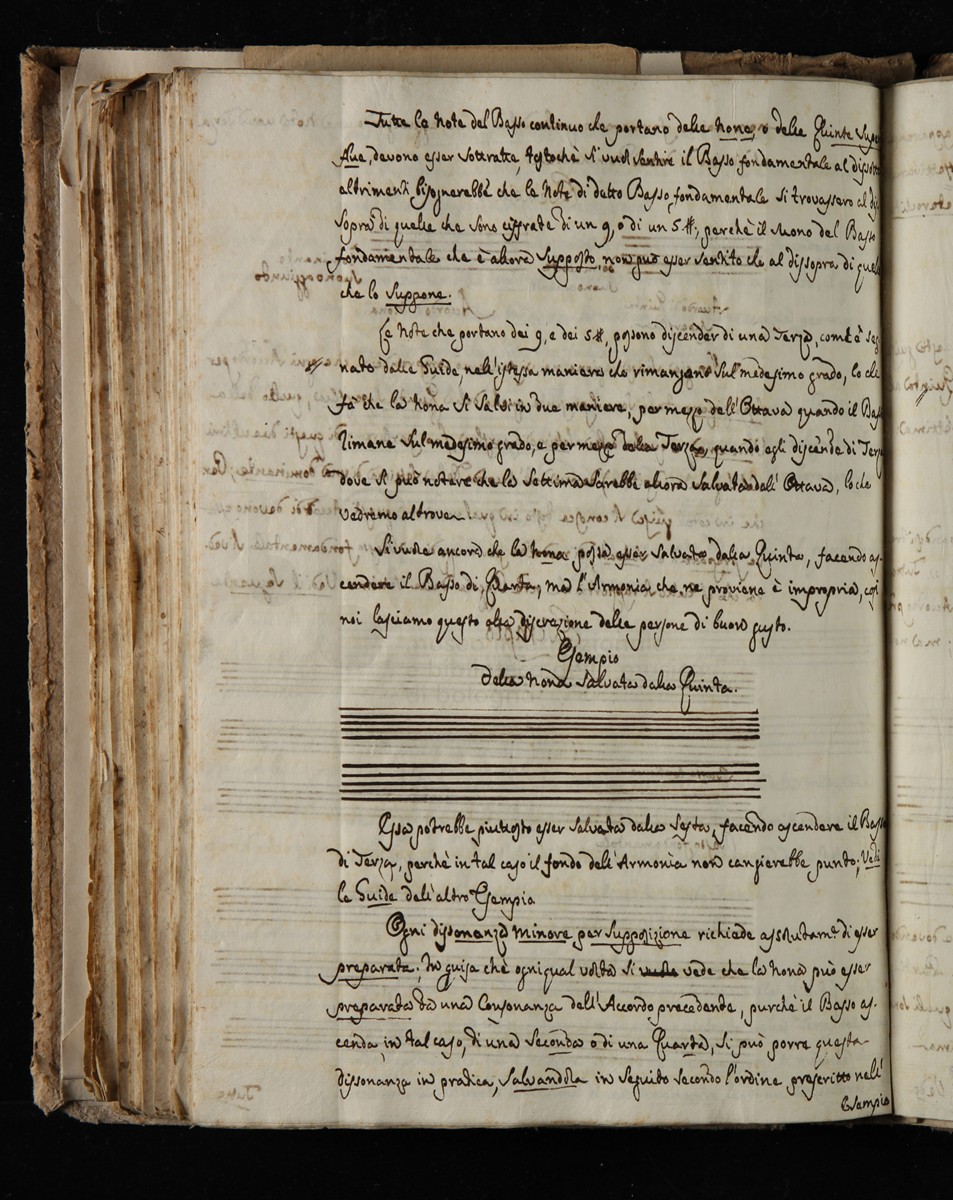 Tutte le Note del Basso continuo che portano delle None, o delle Quinte Super
flue, devono esser sottratte, tostochè si vuol sentire il Basso fondamentale al dissotto
altrimenti bisognerebbe che le Note di detto Basso fondamentale si trovassero al di
sopra di quelle che sono ciffrate di un 9, o di un 5#, perchè il suono del Basso
fondamentale che è allora Supposto, non può esser sentito che al dissopra di quel
che lo Suppone.
Le Note che portano dei 9, e dei 5#, possono discender di una Terza, com'è seg
nato dalle Guide, nell'istessa maniera che rimangono sul medesimo grado, lo che
fà che la Nona si salvi in due maniere, per mezzo dell'Ottava quando il Bass
rimane sul medesimo grado, e per mezzo della Terza, quando egli discende di Terz
dove si può notare che la Settima sarebbe allora salvata dall'Ottava, lo che
vedremo altrove.
Si vuole ancora che la Nona possa esser salvata dalla Quinta, facendo as-
cendere il Basso di Quarta; ma l'Armonia che ne proviene è impropria, così
noi lasciamo questo alla discrezione delle persone di buon gusto.
Esempio
Della Nona Salvata dalla Quinta.
Essa potrebbe piuttosto esser salvata dalla Sesta, facendo ascendere il Basso
di Terza, perchè in tal caso il fondo dell'Armonia non cangierebbe punto; Vedi
le Guide dell'altro Esempio
Ogni dissonanza Minore per supposizione richiede assolutam.e di esser
preparata. In guisa che ogniqual volta si vede che la Nona può esser
preparata da una Consonanza dell'Accordo precedente, purchè il Basso as-
cenda in tal caso, di una Seconda o di una Quarta, si può porre questa
dissonanza in pratica, Salvandola in seguito secondo l'ordine prescritto nell'
Esempio